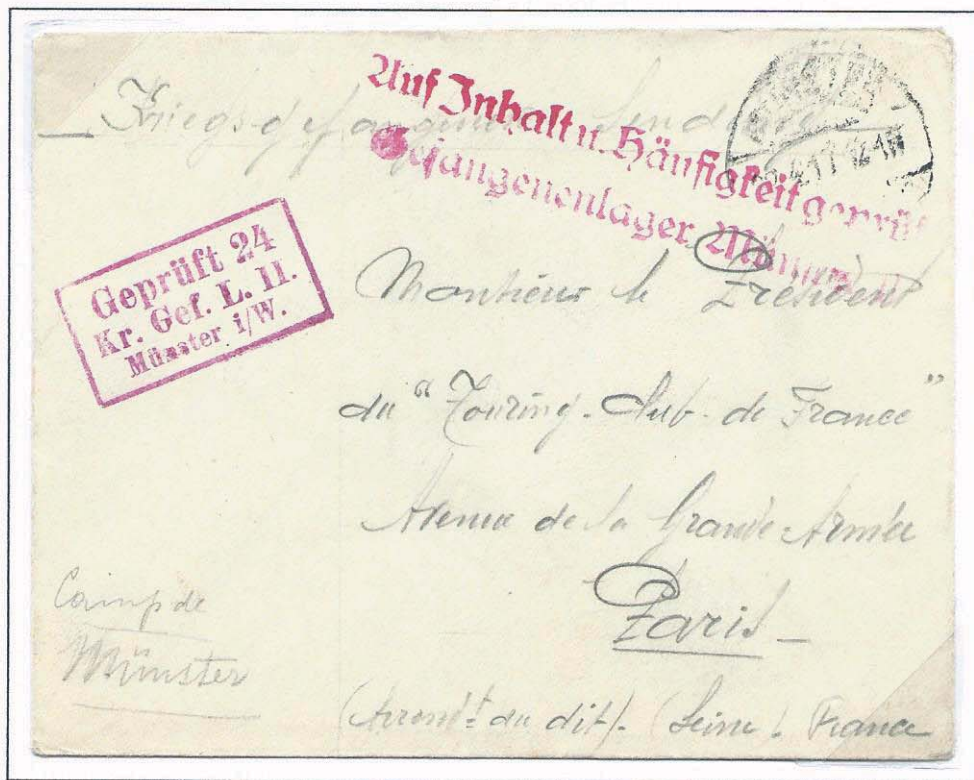 Kriegsgefangenen Sendung
Auf Inhalt u. Häufigkeit geprüft
Gefangenenlager Münster
Geprüft 24
Kr. Gef. L. II.
Münster i/W.
Monsieur le Président
du "Touring-Club-de France"
Avenue de la Grande-Armée
Paris-
Camp de
Münster
(Arrondt du dit)- (Seine) France